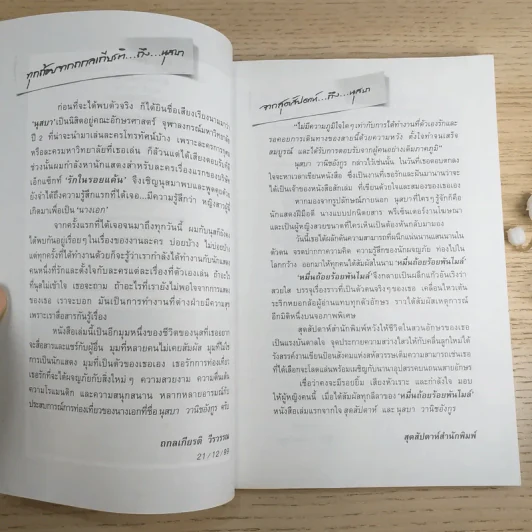 ทุกถ้อยจากถกลเกียรติ...ถึง...นุสบา
ก่อนที่จะได้พบตัวจริง ก็ได้ยินชื่อเสียงเรียงนามมาว่า
'นุสบา' เป็นนิสิตอยู่คณะอักษรศาสตร์ จุฬาลงกรณ์มหาวิทยาลัย
ปี 2 ที่น่าจะนำมาเล่นละครโทรทัศน์บ้าง เพราะละครการกุศล
หรือละครมหาวิทยาลัยที่เธอเล่น ก็ล้วนแต่ได้เสียงตอบรับที่ดี
ช่วงนั้นผมกำลังหานักแสดงสำหรับละครเรื่องแรกของบริษัท
เอ็กแซ็กท์ 'รักในรอยแค้น' จึงเชิญนุสบามาพบและพูดคุยด้วย
ยังจำได้ถึงความรู้สึกแรกที่ได้เจอ...มีความรู้สึกว่า หญิงสาวผู้นี้
เกิดมาเพื่อเป็น 'นางเอก'
จากครั้งแรกที่ได้เจอจนมาถึงทุกวันนี้ ผมกับนุสก็ยังคง
ได้พบกันอยู่เรื่อยๆ ในเรื่องของงานละคร บ่อยบ้าง ไม่บ่อยบ้าง
แต่ทุกครั้งที่ได้ทำงานด้วยก็จะรู้ว่าเรากำลังได้ทำงานกับนักแสดง
คนหนึ่งที่รักและตั้งใจกับละครแต่ละเรื่องที่ตัวเองเล่น ถ้าอะไร
ที่นุสไม่เข้าใจ เธอจะถาม ถ้าอะไรที่เรายังไม่พอใจจากการแสดง
ของเธอ เราจะบอก มันเป็นการทำงานที่ต่างฝ่ายมีความสุข
เพราะเราสื่อสารกันรู้เรื่อง
หนังสือเล่มนี้เป็นอีกมุมหนึ่งของชีวิตของนุสที่เธออยาก
จะสื่อสารและแชร์กับผู้อื่น มุมที่หลายคนไม่เคยสัมผัส มุมที่ไม่ใช่
การเป็นนักแสดง มุมที่เป็นตัวของเธอเอง เธอรักการท่องเที่ยว
เธอรักที่จะได้ผจญภัยกับสิ่งใหม่ๆ ความสวยงาม ความตื่นเต้น
ความโรแมนติก และความสนุกสนาน หลากหลายอารมณ์กับ
ประสบการณ์การท่องเที่ยวของนางเอกที่ชื่อ นุสบา วานิชอังกูร ครับ
ถกลเกียรติ วีรวรรณ
21/12/99
จากสุดสัปดาห์...ถึง...นุสบา
"ไม่มีความภูมิใจใดๆ เท่ากับการได้ทำงานที่ตัวเองรักและ
รอคอยการเดินทางของสายน้ำด้วยความหวัง ตั้งใจทำจนเสร็จ
สมบูรณ์ และได้รับการตอบรับจากผู้คนอย่างเต็มภาคภูมิ"
นุสบา วานิชอังกูร กล่าวไว้เช่นนั้น ในวันที่เธอตอบตกลง
ใจจะหาเวลาเขียนหนังสือ ซึ่งเป็นงานที่เธอรักและฝันมานานว่าจะ
ได้เป็นเจ้าของหนังสือสักเล่ม ที่เขียนด้วยใจและสมองของเธอเอง
หากมองจากรูปลักษณ์ภายนอก นุสบาที่ใครๆ รู้จักก็คือ
นักแสดงฝีมือดี นางแบบปกนิตยสาร พรีเซ็นเตอร์งานโฆษณา
และเป็นผู้หญิงสวยขนาดที่ใครเห็นเป็นต้องหันกลับมามอง
วันนี้เธอได้ผลักดันความสามารถที่ผนึกแน่นนานแสนนานใน
ตัวตน จรดปากกาความคิด ความรู้สึกของนักผจญภัย ท่องไปใน
โลกกว้าง ออกมาให้ทุกคนได้สัมผัสในนาม 'หมื่นถ้อยร้อยพันไมล์'
'หมื่นถ้อยร้อยพันไมล์' จึงกลายเป็นผลึกแก้วอันเจิดจ้า
สวยใส บรรจุเรื่องราวที่เป็นตัวตนจริงๆ ของเธอ เคลื่อนไหวเต้น
ระริกหยอกล้อผู้อ่านแทบทุกตัวอักษร ราวได้สัมผัสเหตุการณ์
อีกมิติหนึ่งบนจอภาพพิเศษ
สุดสัปดาห์สำนักพิมพ์หวังให้ชีวิตในสวนอักษรของเธอ
เป็นแรงบันดาลใจ จุดประกายความสว่างไสวให้กับคลื่นลูกใหม่ได้
รังสรรค์งานเขียนป้อนสังคมแห่งสหัสวรรษเติมความสามารถเช่นเธอ
ที่ได้เลือกจะโลดแล่นพร้อมเผชิญกับนานาอุปสรรคบนถนนสายอักษร
เชื่อว่าคงจะมีรอยยิ้ม เสียงหัวเราะ และกำลังใจ มอบ
ให้ผู้หญิงคนนี้ เมื่อได้สัมผัสทุกลีลาของ 'หมื่นถ้อยร้อยพันไมล์'
หนังสือเล่มแรกจากใจ สุดสัปดาห์ และ นุสบา วานิชอังกูร
สุดสัปดาห์สำนักพิมพ์